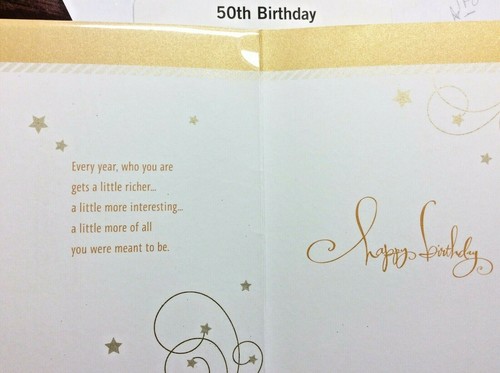 50th Birthday
Every year, who you are
gets a little richer...
a little more interesting...
a little more of all
you were meant to be.
happy birthday